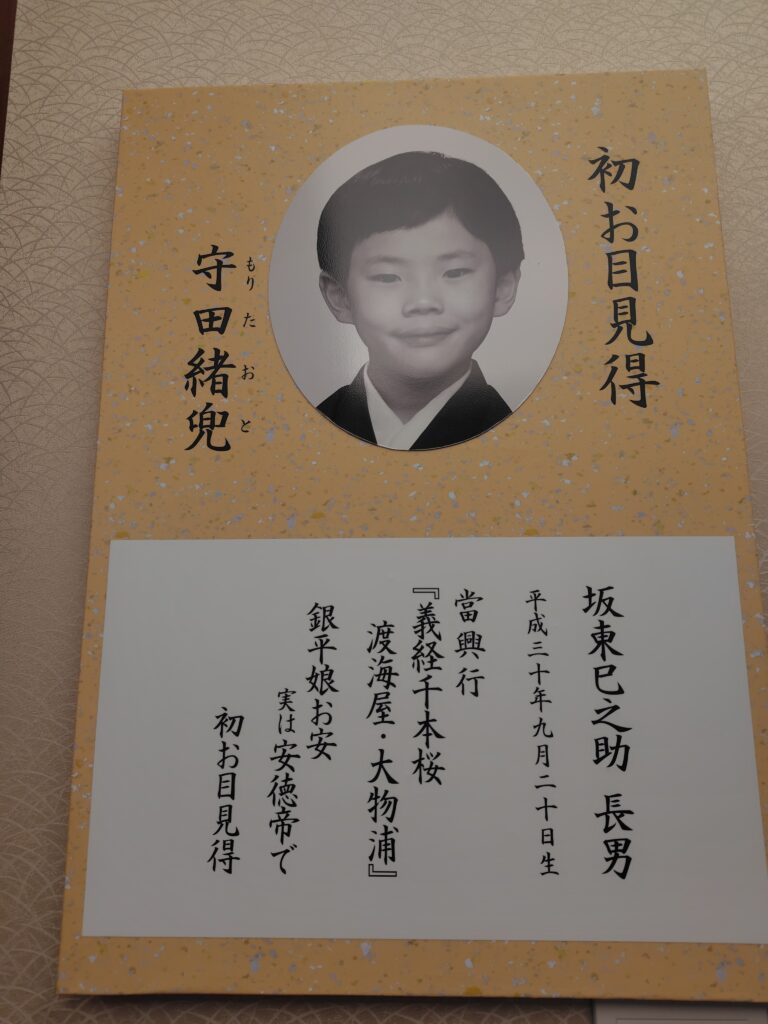 初お目見得
守田緒兜
もりたおと
坂東巳之助 長男
平成三十年九月二十日生
當興行
『義経千本桜
渡海屋・大物浦』
銀平娘お安
実は安徳帝で
初お目見得